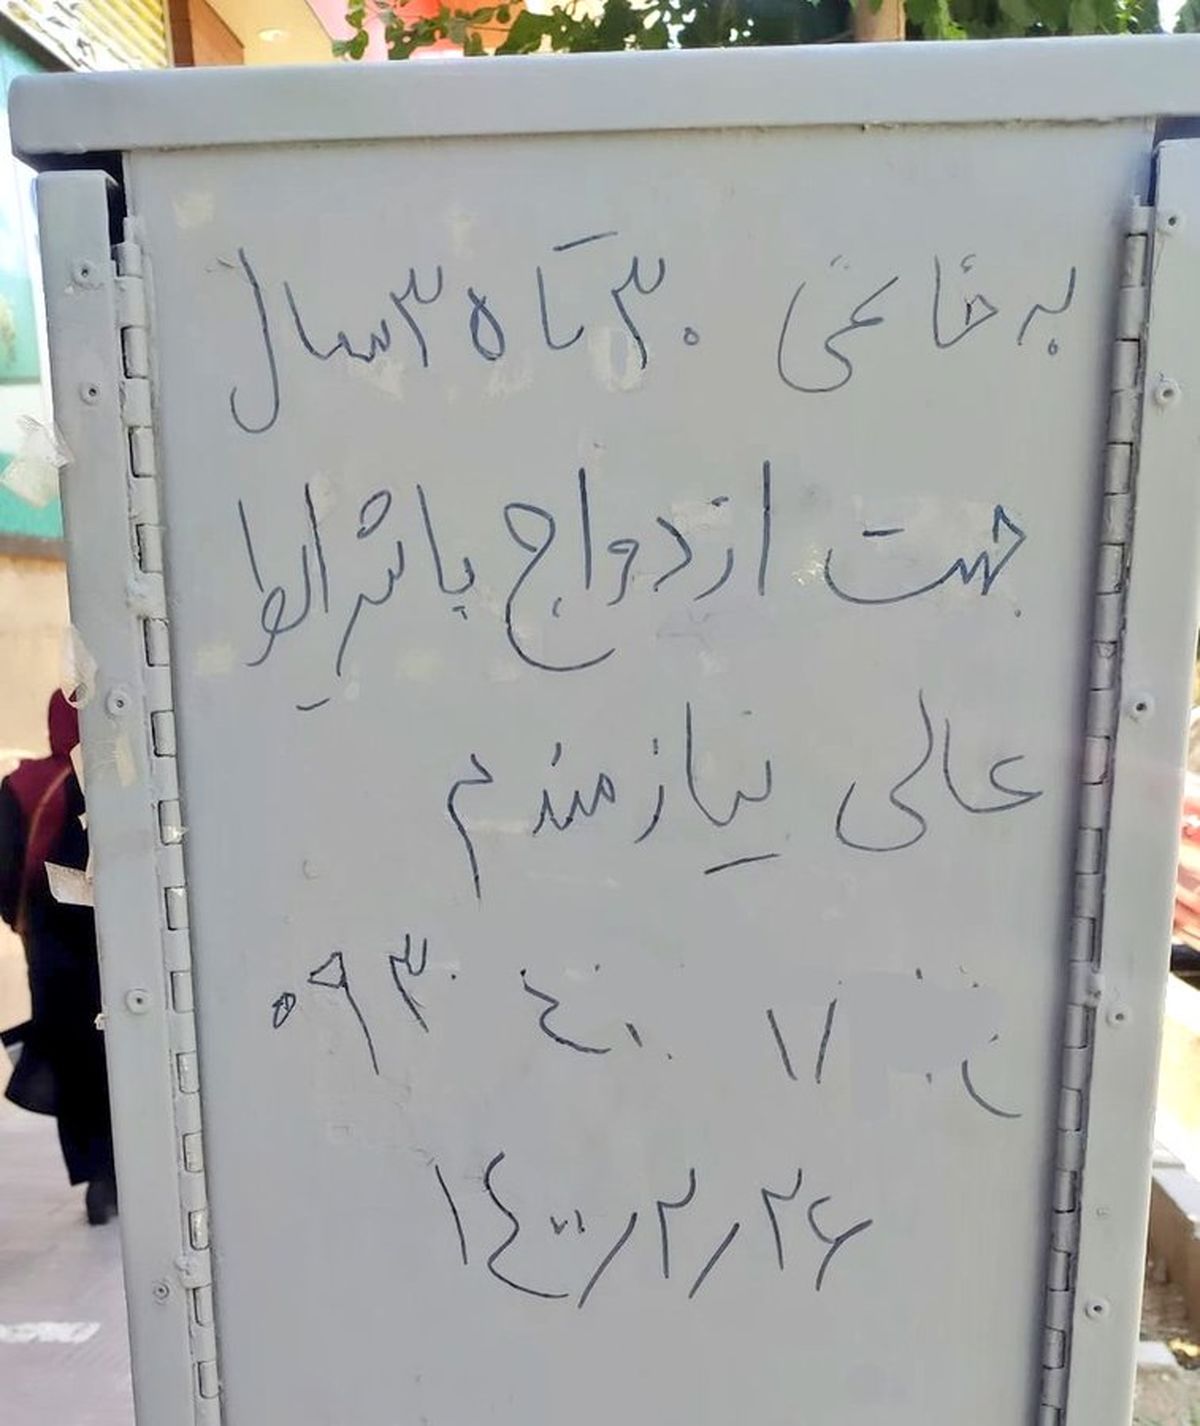 به خانمی ۳۰ تا ۳۵ سال
جهت ازدواج با شرایط
عالی نیازمندم
۰۹۳۰
۱۴۰۰/۲/۲۶